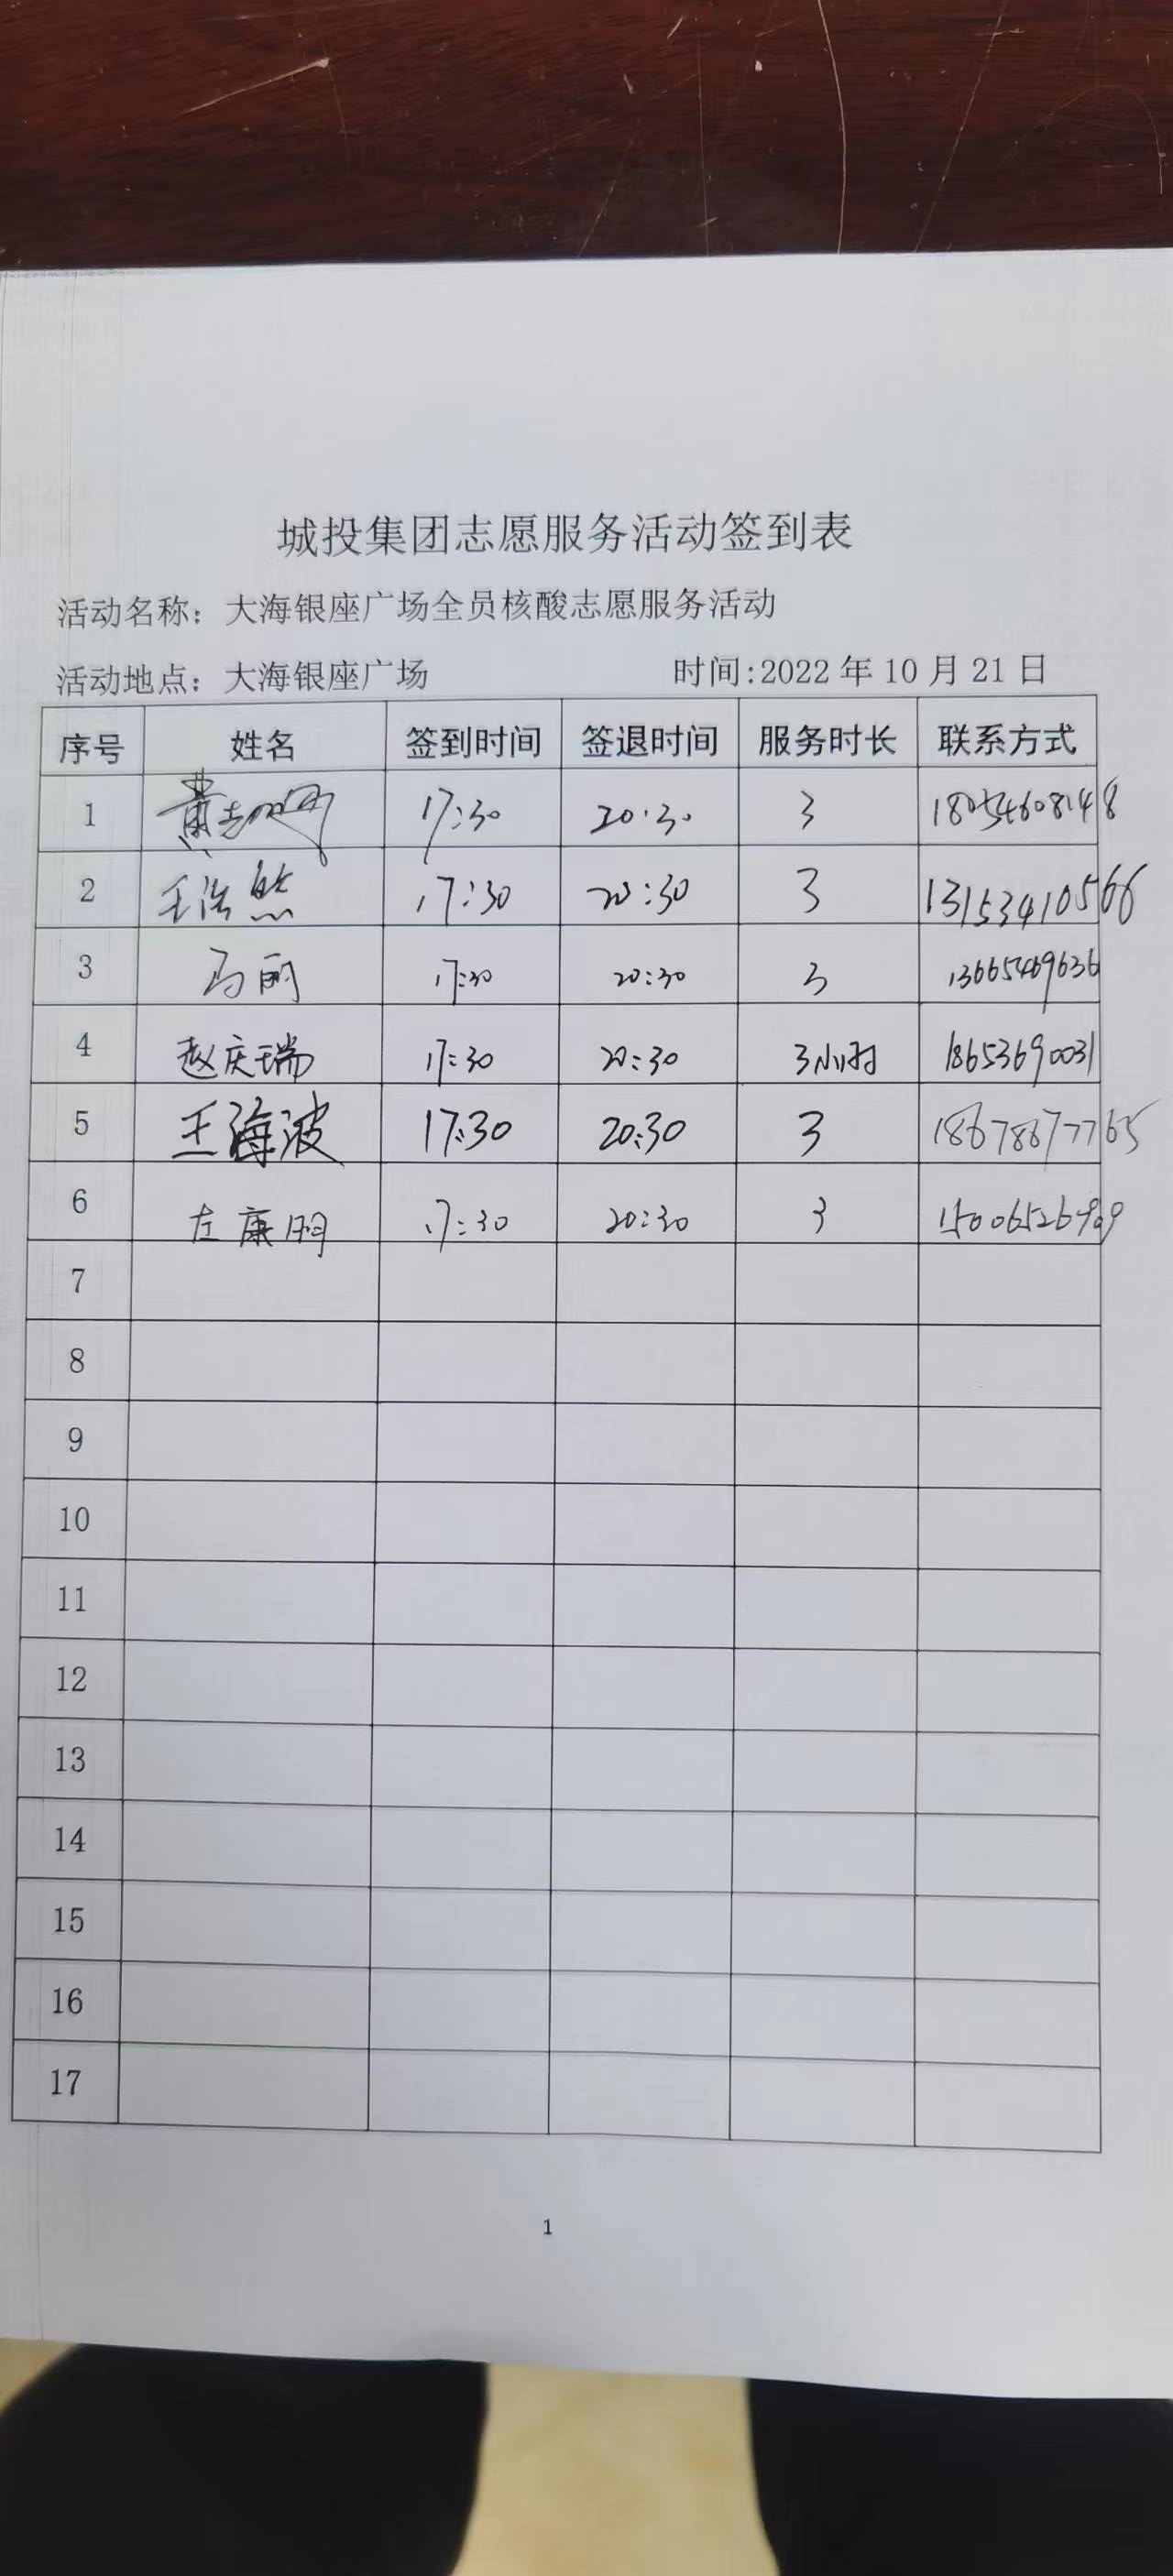 城投集团志愿服务活动签到表
活动名称：大海银座广场全员核酸志愿服务活动
活动地点：大海银座广场 时间:2022年10月21日
序号 姓名 签到时间 签退时间 服务时长 联系方式
1 17:30 20:30 3 18054608148
2 王浩然 17:30 20:30 3 13153410566
3 马丽 17:30 20:30 3 13665469636
4 赵庆瑞 17:30 20:30 3小时 18653690031
5 王海波 17:30 20:30 3 18678677765
6 左康明 17:30 20:30 3
7
8
9
10
11
12
13
14
15
16
17
1